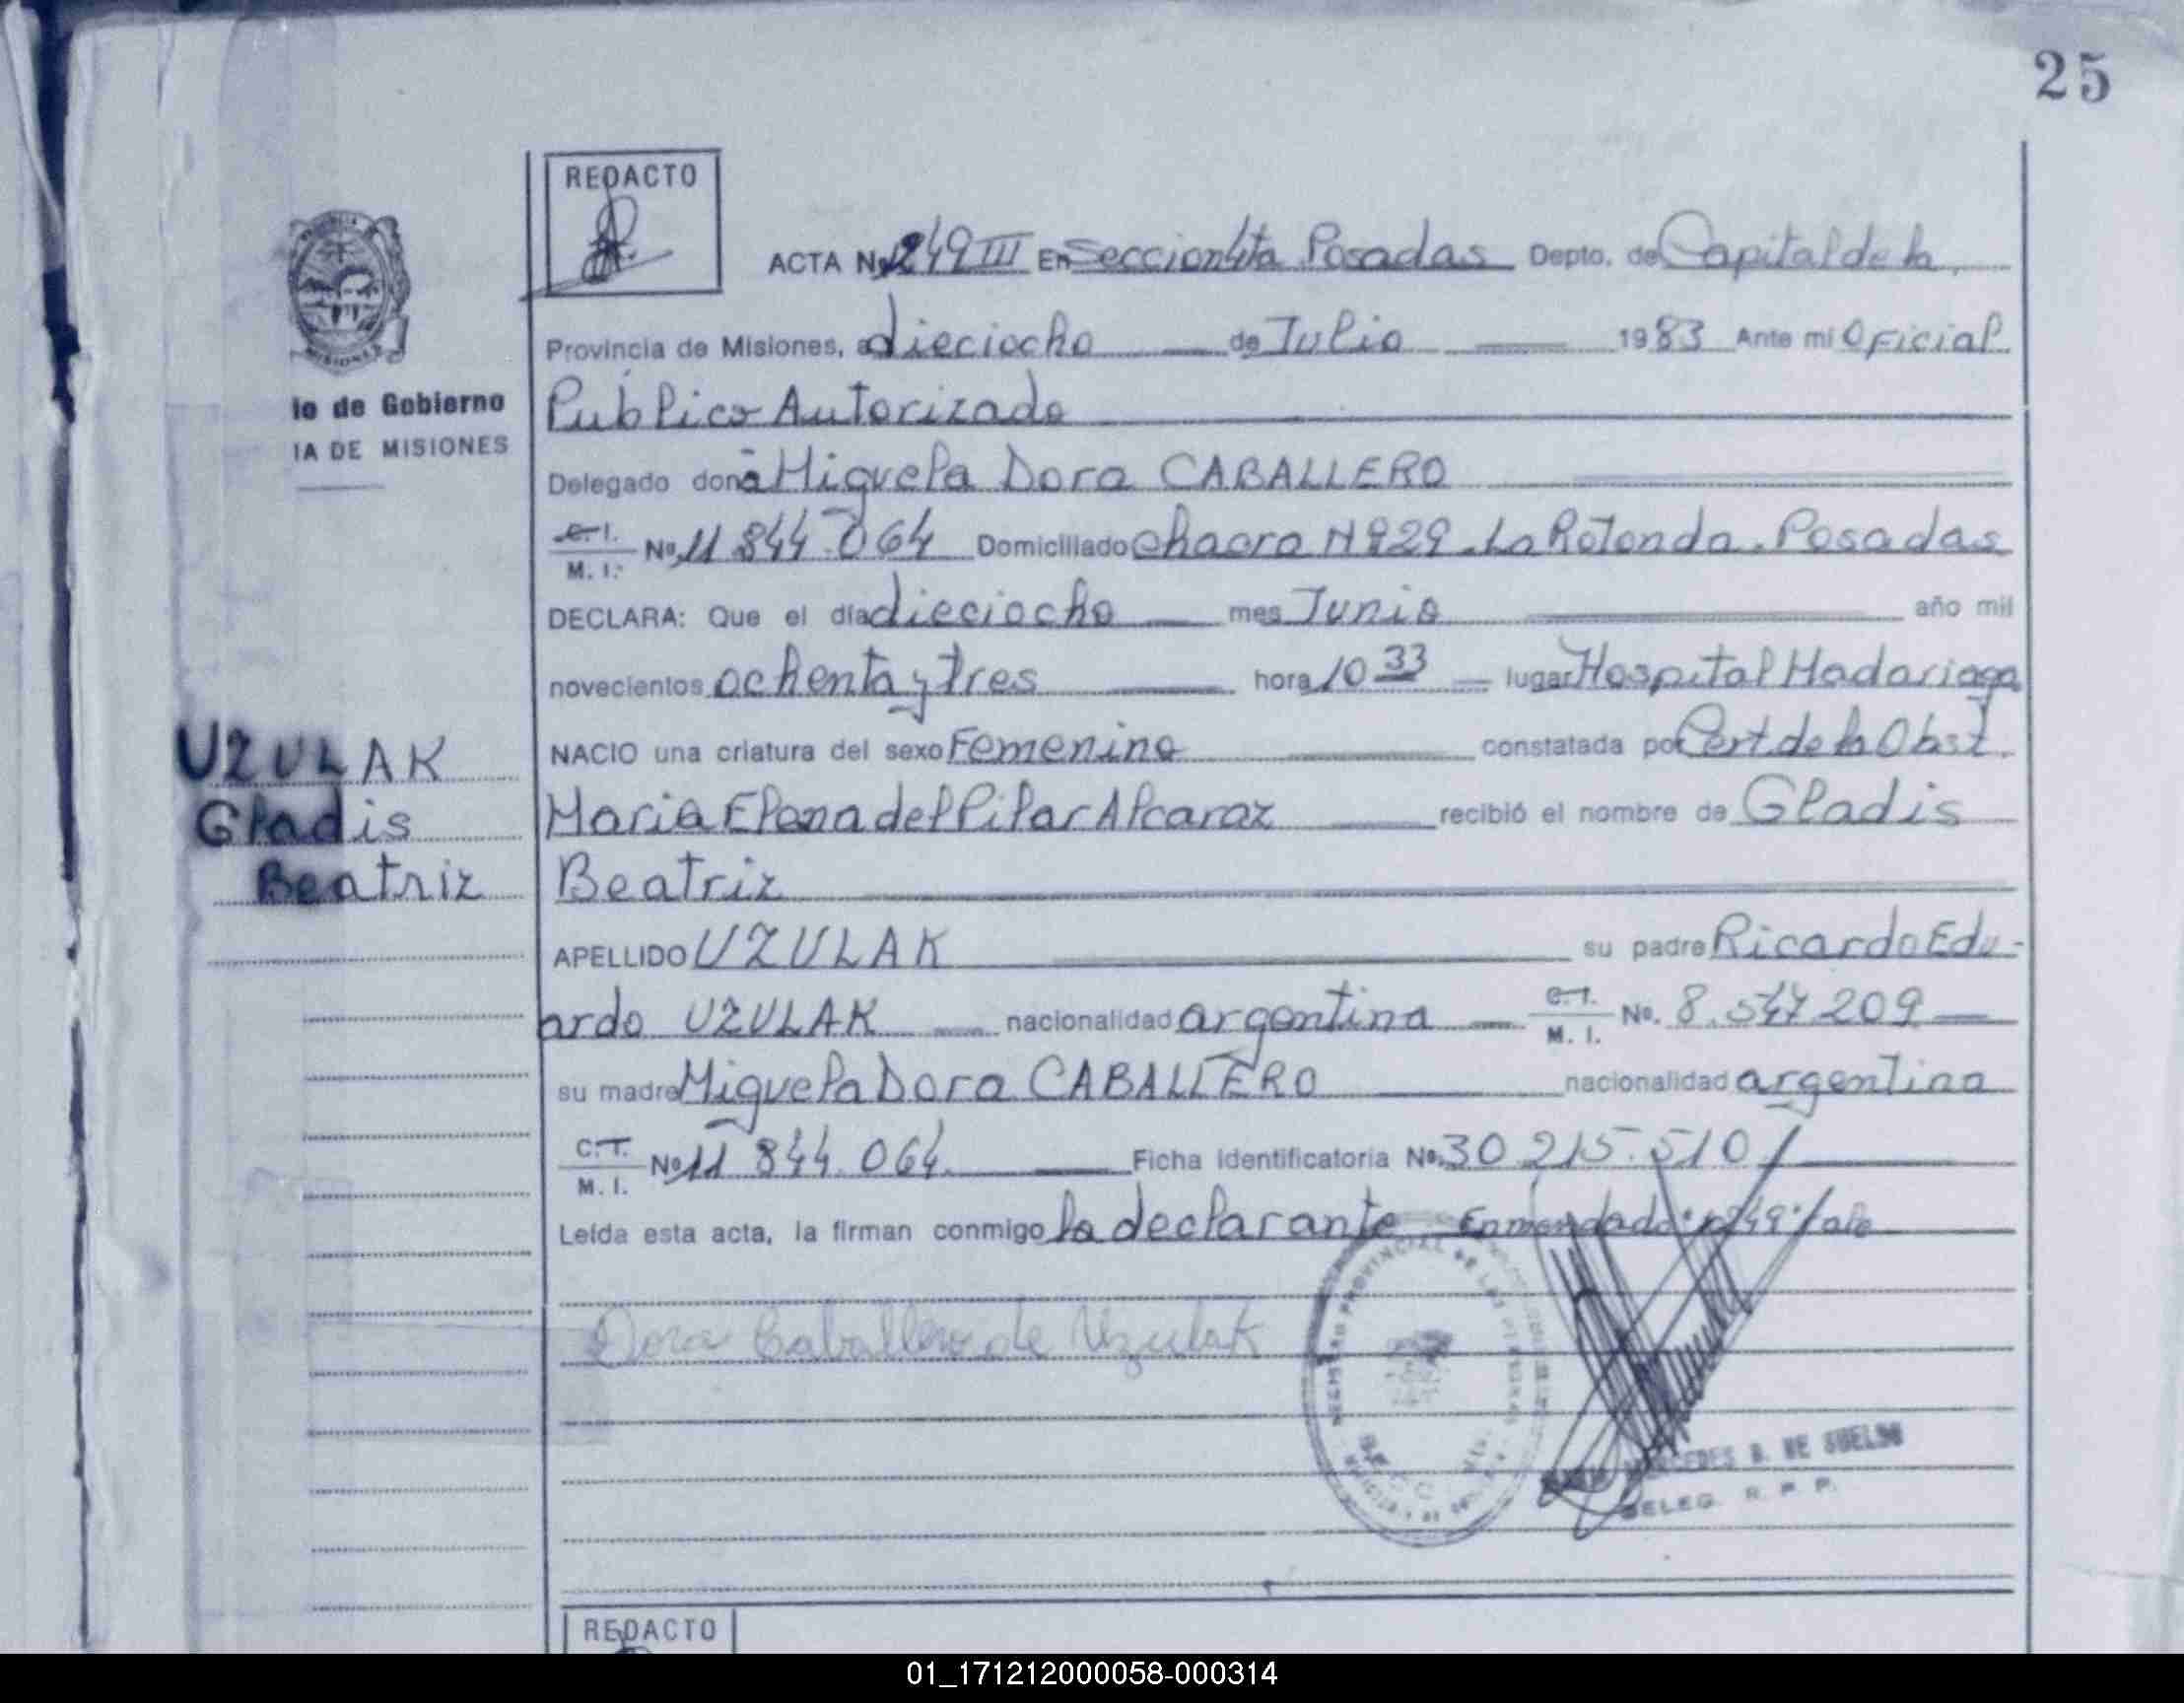 25
REDACTO
ACTA Nº 1249 III En Seccion 4ta Posadas Depto. de Capital de la
Provincia de Misiones, a dieciocho de Julio 1983 Ante mi Oficial
Publico Autorizado
Delegado donã Miguela Dora CABALLERO
C.I. M.I. Nº 11 844.064 Domiciliado Chacra Nº 29 - La Rotonda. Posadas
DECLARA: Que el día dieciocho mes Junio año mil
novecientos ochenta y tres hora 10 33 lugar Hospital Madariaga
NACIO una criatura del sexo Femenino constatada por Cert de la Obst.
Maria Elena del Pilar Alcaraz recibió el nombre de Gladis
Beatriz
APELLIDO UZULAK su padre Ricardo Edu-
ardo UZULAK nacionalidad argentina C.I. M.I. No. 8.547.209
su madre Miguela Dora CABALLERO nacionalidad argentina
C.I. M.I. Nº 11 844.064 Ficha Identificatoria Nº 30.215.510
Leída esta acta, la firman conmigo la declarante Enmendado: 1249: Vale
Dora Caballero de Uzulak
io de Gobierno
IA DE MISIONES
UZULAK
Gladis
Beatriz
MISIONES
REGISTRO PROVINCIAL DE LAS PERSONAS
MERCEDES B. DE
DELEG. R. P. P.
REDACTO
01_171212000058-000314